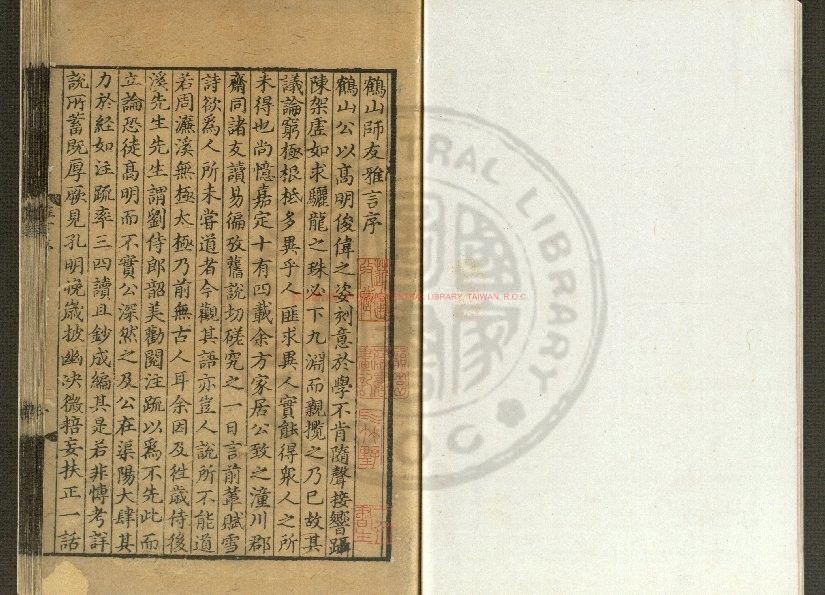 鶴山師友雅言序
鶴山公以髙明俊偉之姿刻意於學不肯隨聲接響躡
陳架虛如求驪龍之珠必下九淵而親攬之乃已故其
議論窮極根柢多異乎人匪求異人實能得衆人之所
未得也尚憶嘉定十有四載余方家居公致之潼川郡
齋同諸友讀易徧攷舊說切磋究之一日言前軰賦雪
詩欲爲人所未甞道者今觀其語亦豈人說所不能道
若周濂溪無極太極乃前無古人耳余因及徃歲侍後
溪先生先生謂劉侍郎韶美勸閱注疏以爲不先此而
立論恐徒髙明而不實公深然之及公在渠陽大肆其
力於經如注疏率三四讀且鈔成編其是若非慱考詳
說所蓄旣厚厥見孔明晚歳披幽决微掊妄扶正一話
CENTRAL LIBRARY, TAIWAN, R.O.C.
CENTRAL LIBRARY
ROC
國家